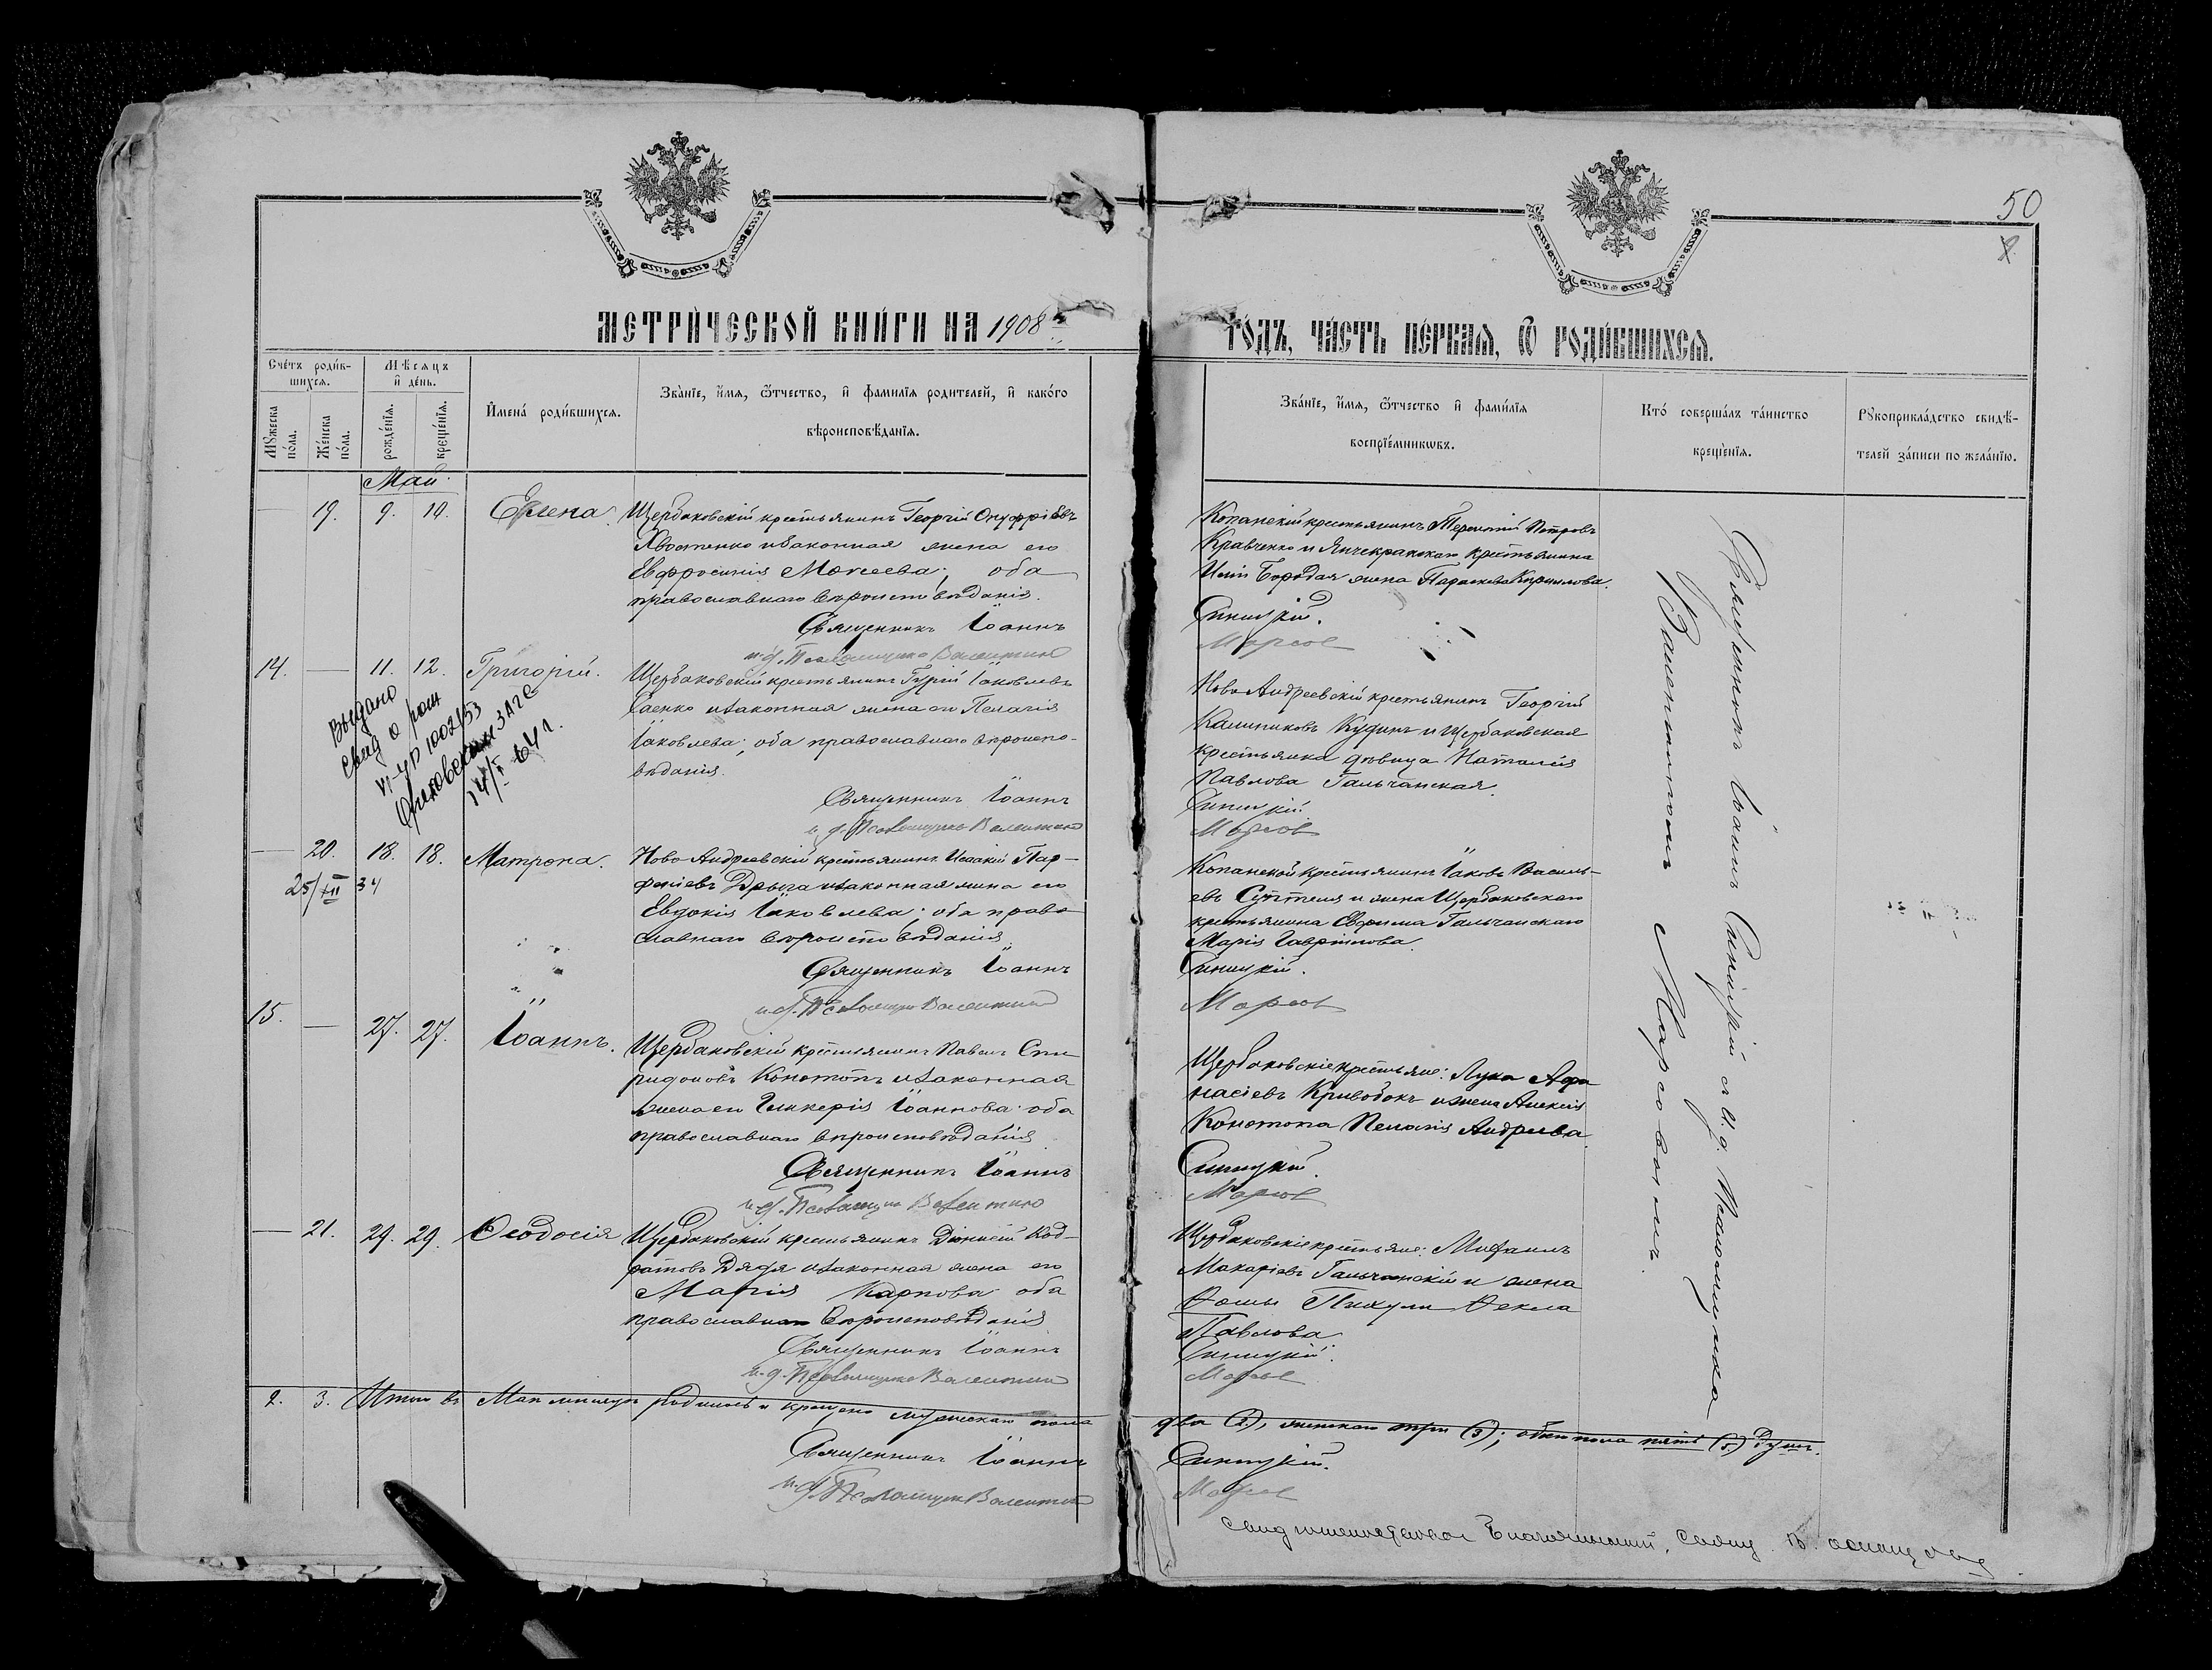 50
8
МЕТРИЧЕСКОЙ КНИГИ НА 1908й
ГОДЪ, ЧАСТЬ ПЕРВАЯ, Ѿ РОДИВШИХСЯ.
Счетъ родив-
шихся.
Мѣсяцъ
и день.
Мужеска
пола.
Женска
пола.
рожденія.
крещенія.
Имена родившихся.
Званіе, имя, ѿтчество, и фамилія родителей, и какого
вѣроисповѣданія.
Званіе, имя, ѿтчество и фамилія
воспріемниковъ.
Кто совершалъ таинство
крещенія.
Рукоприкладство свидѣ-
телей записи по желанію.
Май
19. 9. 10. Елена.
Щербаковскій крестьянинъ Георгій Онуфріевъ
Хвостенко и законная жена его
Евфросинія Моисеева; оба
православнаго вѣроисповѣданія.
Священникъ Іоаннъ
и. д. Псаломщика Валентинъ
Копанскій крестьянинъ Терентій Петровъ
Кравченко и Янчекракскаго крестьянина
Бородая жена Параскева Кириллова.
Синицкій.
Марсов
14. — 11. 12. Григорій.
Щербаковскій крестьянинъ Гурій Іаковлевъ
Саенко и законная жена его Пелагія
Іаковлева; оба православнаго вѣроиспо-
вѣданія.
Священникъ Іоаннъ
и. д. Псаломщика Валентинъ
Выдано
свид о рож
VI-УР 100253
Ореховским ЗАГС
14/I 64 г.
Ново Андреевскій крестьянинъ Георгій
Калинниковъ Кудинъ и Щербаковская
крестьянка дѣвица Наталія
Павлова Гальчанская.
Синицкій.
Марсов
— 20. 18. 18. Матрона.
25/XII 34
Ново Андреевскій крестьянинъ Исаакій Пар-
феніевъ Дрыга и законная жена его
Евдокія Іаковлева; оба право-
славнаго вѣроисповѣданія.
Священникъ Іоаннъ
и. д. Псаломщика Валентинъ
Копанскій крестьянинъ Іаковъ Василь-
евъ и жена Щербаковскаго
крестьянина Ефима Гальчанскаго
Марія Гавріилова.
Синицкій.
Марсов
15. — 27. 27. Іоаннъ.
Щербаковскій крестьянинъ Павелъ Спи-
ридоновъ Конотопъ и законная
жена его Гликерія Іоаннова; оба
православнаго вѣроисповѣданія
Священникъ Іоаннъ
и. д. Псаломщика Валентинъ
Щербаковскіе крестьяне: Лука Афа-
насіевъ Кривобокъ и жена Алексія
Конотопа Пелагія Андреева.
Синицкій.
Марсов
— 21. 29. 29. Ѳеодосія
Щербаковскій крестьянинъ Діонисій Код-
ратовъ Дядя и законная жена его
Марія Карпова оба
православнаго вѣроисповѣданія
Священникъ Іоаннъ
и. д. Псаломщика Валентинъ
Щербаковскіе крестьяне: Михаилъ
Макаріевъ Гальчанскій и жена
Ѳомы Ѳекла
Павлова
Синицкій.
Марсов
Священникъ Іоаннъ Синицкій съ И. д. Псаломщика
Валентиномъ Марсовымъ.
2. 3. Итого въ Маѣ мѣсяцѣ родилось и крещено мужескаго пола
два (2), женскаго три (3); обоего пола пять (5) душъ.
Священникъ Іоаннъ
Синицкій.
и. д. Псаломщика Валентинъ
Марсов
Благочинный, Свящ.